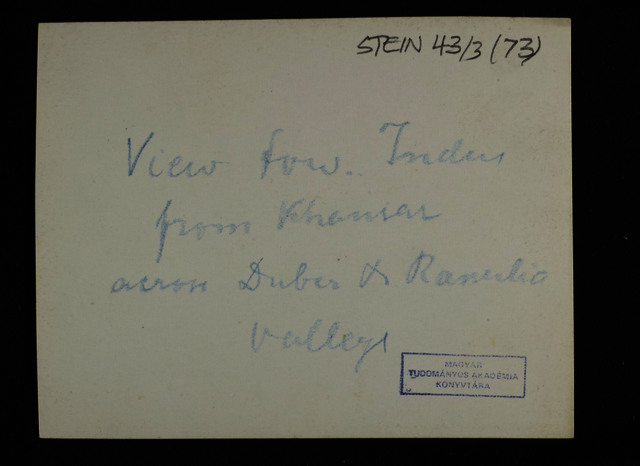 STEIN 43/3 (73)
View tow. Indus
from Khansar
across Duber & Ranulia
valleys
MAGYAR
TUDOMÁNYOS AKADÉMIA
KÖNYVTÁRA